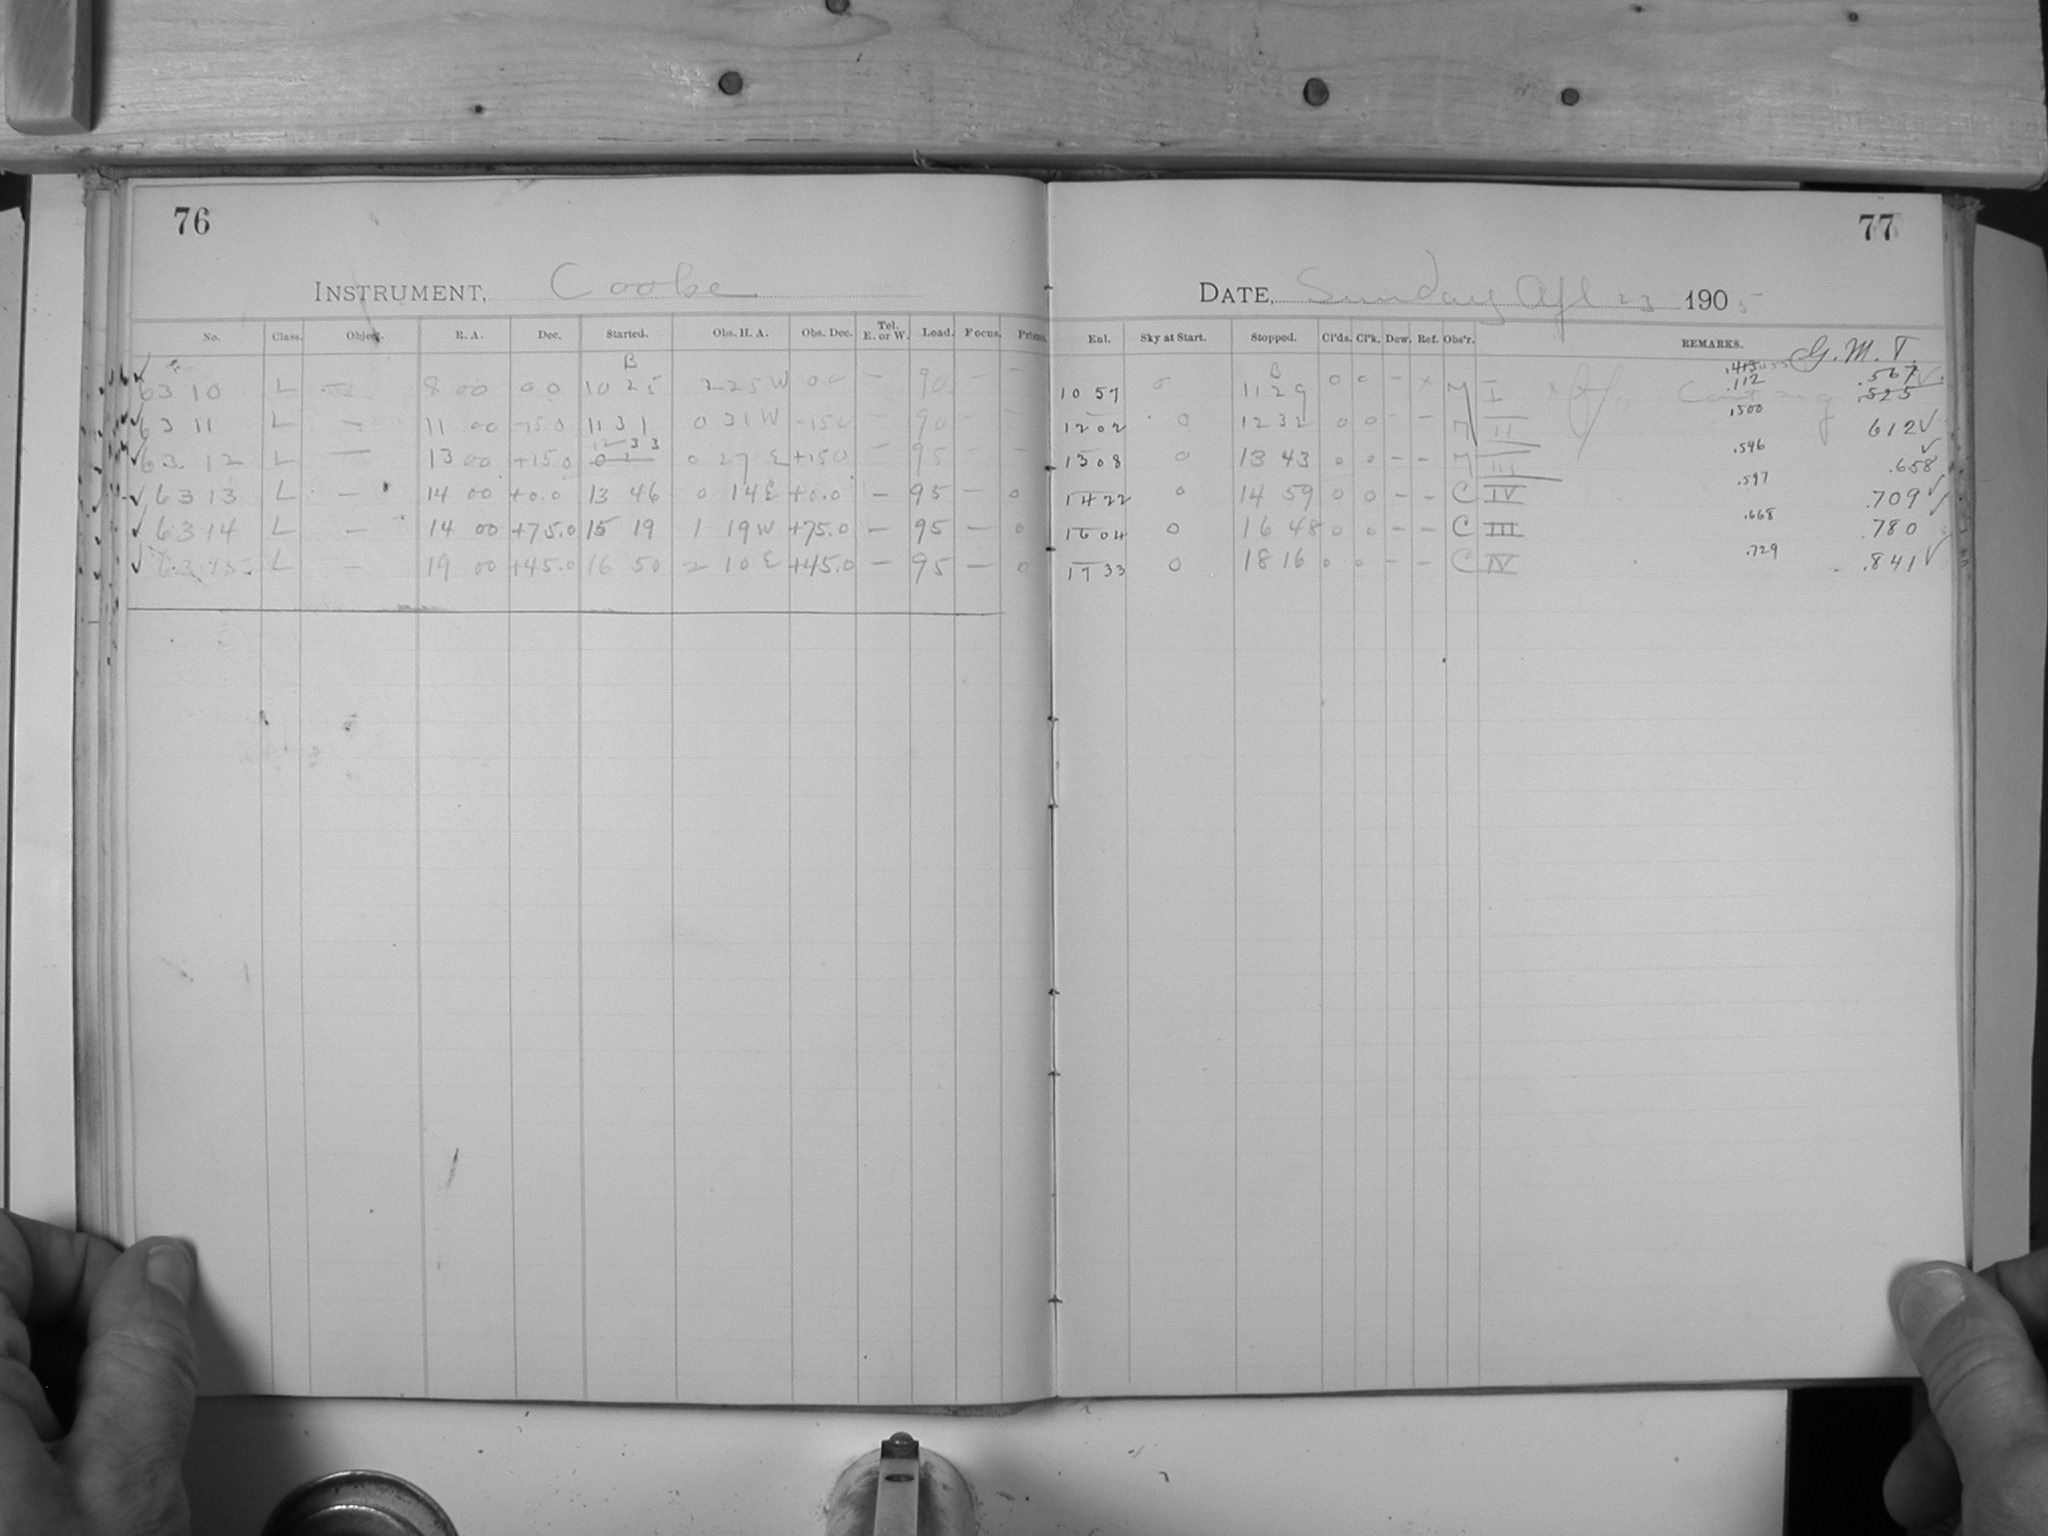 76
INSTRUMENT, Cooke
No. Class. Object. R. A. Dec. Started. Obs. H. A. Obs. Dec. Tel. E. or W. Load. Focus. Prisms.
B
6310 L — 8 00 0.0 10 25 2 25 W 0.0 — 90 — —
6311 L — 11 00 -15.0 11 31 0 31 W -15.0 — 90 — —
12 33
6312 L — 13 00 +15.0 0 27 E +15.0 — 95 — —
6313 L — 14 00 +0.0 13 46 0 14 E +0.0 — 95 — 0
6314 L — 14 00 +75.0 15 19 1 19 W +75.0 — 95 — 0
6315 L — 19 00 +45.0 16 50 2 10 E +45.0 — 95 — 0
77
DATE, Sunday Apl 23 1905
Enl. Sky at Start. Stopped. Cl'ds. Cl'k. Dew. Ref. Obs'r. REMARKS. G. M. T.
B .567 ✓
10 57 0 11 29 0 0 – x M I .112 .525
12 02 0 12 32 0 0 – – M II .500 612 ✓
13 08 0 13 43 0 0 – – M III .546 .658 ✓
14 22 0 14 59 0 0 – – C IV .597 .709 ✓
16 04 0 16 48 0 0 – – C III .668 .780
17 33 0 18 16 0 0 – – C IV .729 .841 ✓